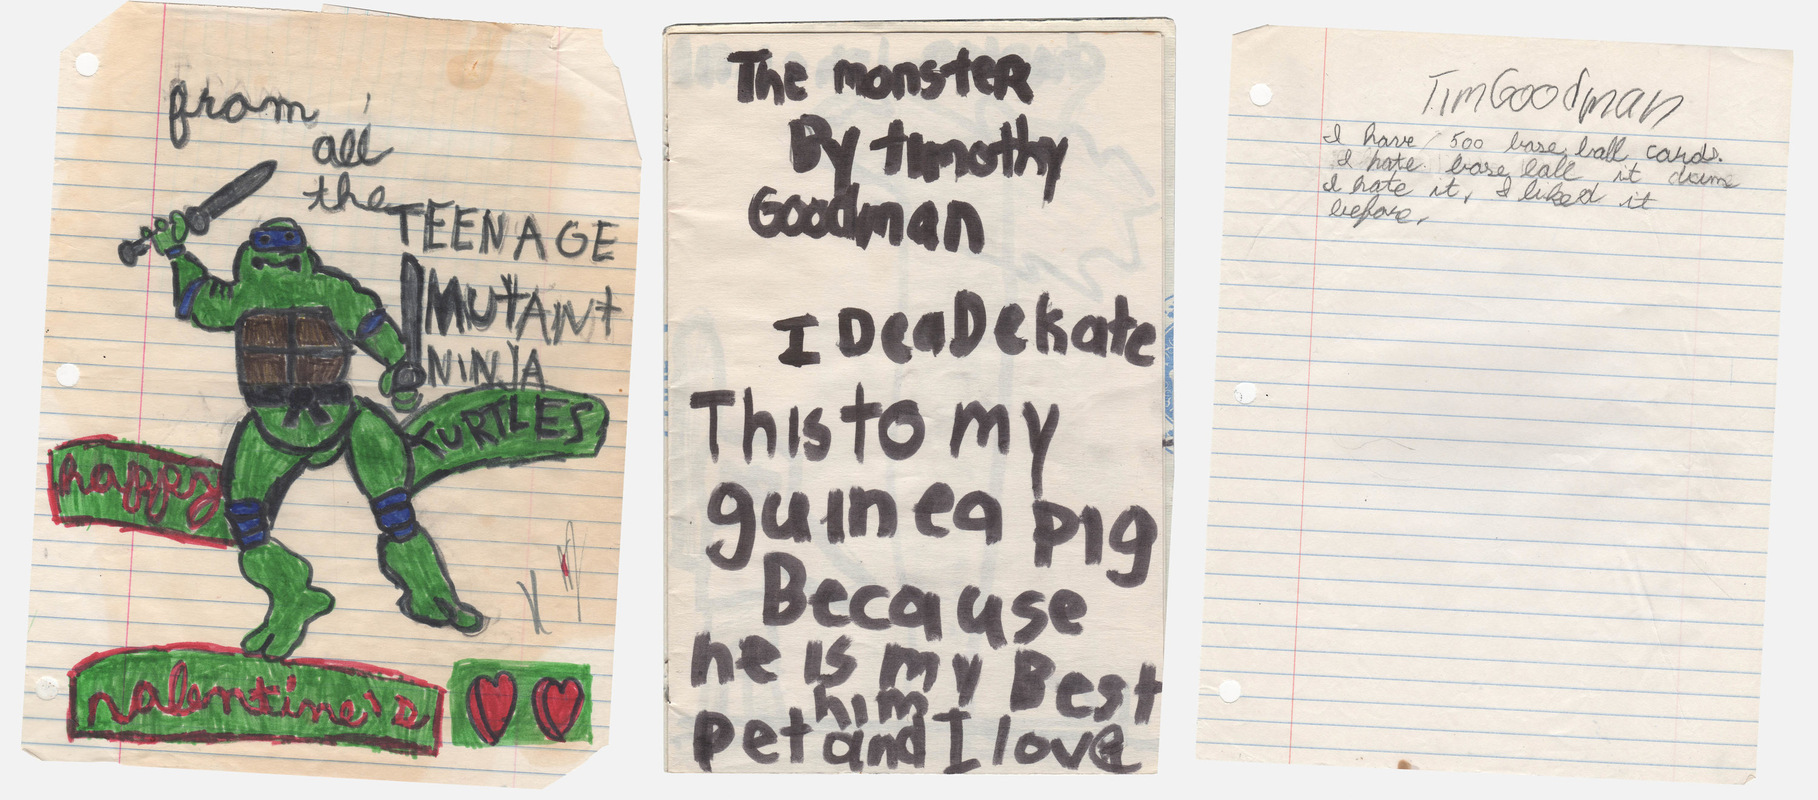 from
all
the
TEENAGE
MUTANT
NINJA
TURTLES
happy
valentine's
The monster
By timothy
Goodman
I DeaDekate
This to my
guinea pig
Because
he is my Best
him
pet and I love
Tim Goodman
I have 500 base ball cards.
I hate base ball it dum
I hate it, I liked it
before,